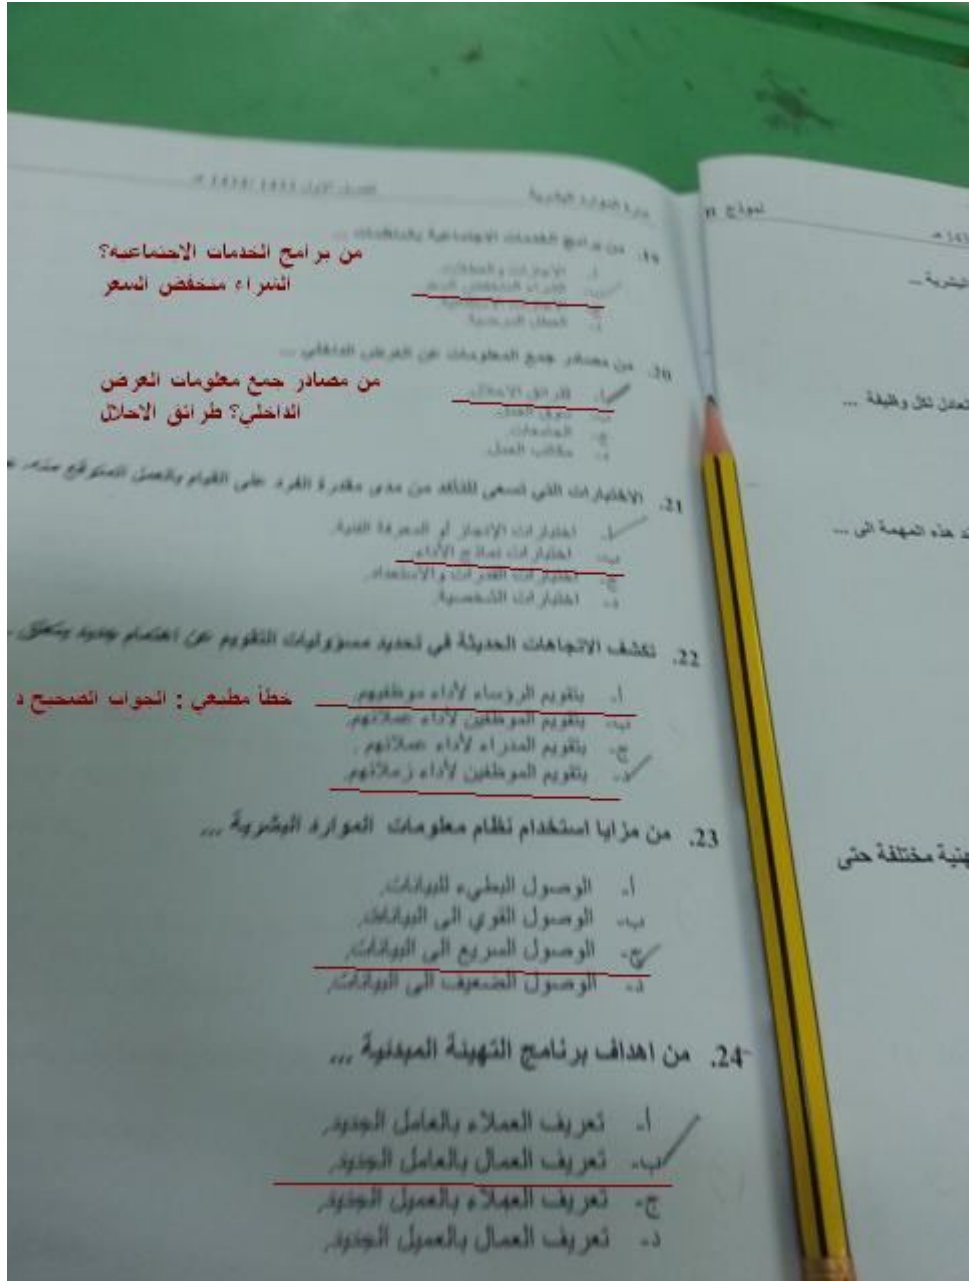 إدارة الموارد البشرية الفصل الأول 1433/1434 هـ
نموذج
19. من برامج الخدمات الاجتماعية بالمنظمات ...
من برامج الخدمات الاجتماعيه؟
الشراء منخفض السعر
أ. الاجازات والعطلات
ب. الشراء المنخفض السعر
د. العطل المرضية
20. من مصادر جمع المعلومات عن العرض الداخلي ...
من مصادر جمع معلومات العرض
الداخلي؟ طرائق الاحلال
أ. طرائق الاحلال
ب. سوق العمل
ج. الجامعات
د. مكاتب العمل
21. الاختبارات التي تسعى للتأكد من مدى مقدرة الفرد على القيام بالعمل المتوقع منه
أ. اختبارات الإنجاز أو المعرفة الفنية.
ب. اختبارات نماذج الأداء.
ج. اختبارات القدرات والاستعداد.
د. اختبارات الشخصية.
22. تكشف الاتجاهات الحديثة في تحديد مسؤوليات التقويم عن اهتمام جديد يتعلق
أ. بتقويم الرؤساء لأداء موظفيهم.
خطأ مطبعي : الجواب الصحيح د
ب. بتقويم الموظفين لأداء عملائهم.
ج. بتقويم المدراء لأداء عملائهم.
د. بتقويم الموظفين لأداء زملائهم.
23. من مزايا استخدام نظام معلومات الموارد البشرية ...
أ. الوصول البطيء للبيانات.
ب. الوصول القوي الى البيانات.
ج. الوصول السريع الى البيانات.
د. الوصول الضعيف الى البيانات.
24. من اهداف برنامج التهيئة المبدئية ...
أ. تعريف العملاء بالعامل الجديد.
ب. تعريف العمال بالعامل الجديد.
ج. تعريف العملاء بالعميل الجديد.
د. تعريف العمال بالعميل الجديد.
البشرية ...
لكل وظيفة ...
هذه المهمة الى ...
مختلفة حتى